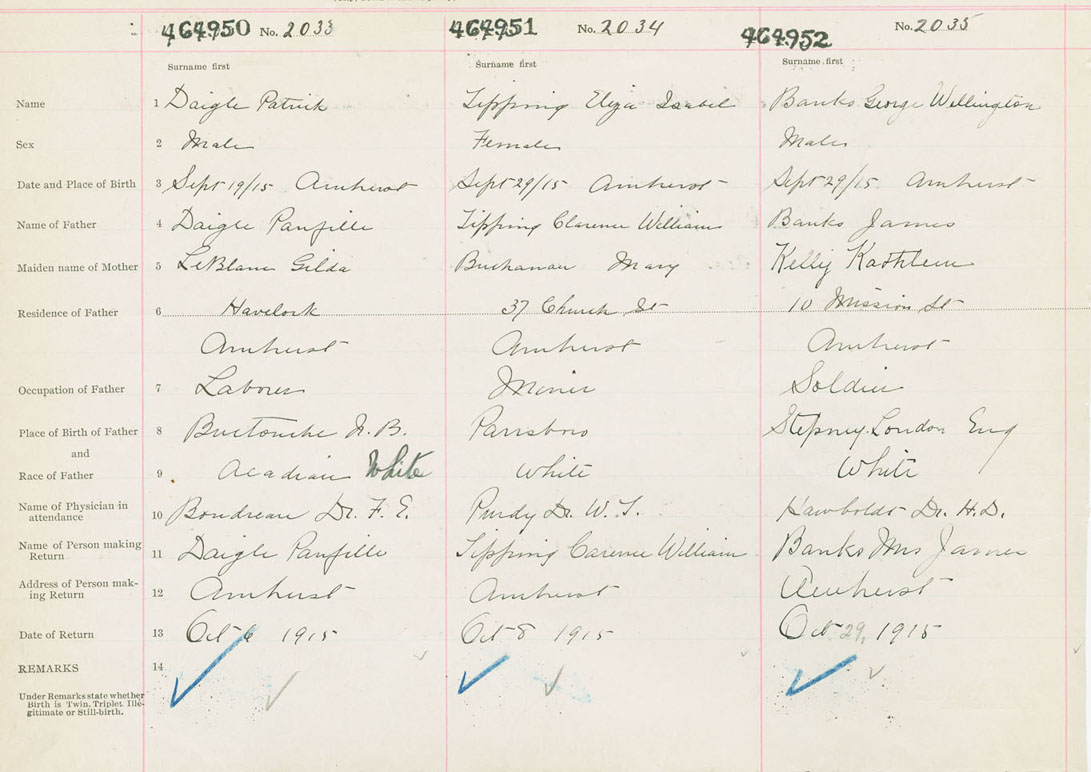 464950 No. 2033 464951 No. 2034 464952 No. 2035
Surname first Surname first Surname first
Name 1 Daigle Patrick Tipping Eliza Isabel Banks George Wellington
Sex 2 Male Female Male
Date and Place of Birth 3 Sept 19/15 Amherst Sept 29/15 Amherst Sept 29/15 Amherst
Name of Father 4 Daigle Panfille Tipping Clarence William Banks James
Maiden name of Mother 5 LeBlanc Gilda Buchanan Mary Kelly Kathleen
Residence of Father 6 Havelock 37 Church St 10 Mission St
Amherst Amherst Amherst
Occupation of Father 7 Laborer Miner Soldier
Place of Birth of Father 8 Buctouche N.B. Parrsboro Stepney London Eng
and
Race of Father 9 Acadian White White White
Name of Physician in
attendance 10 Boudreau Dr. F. E. Purdy Dr. W. T. Hawboldt Dr. H.D.
Name of Person making
Return 11 Daigle Panfille Tipping Carence William Banks Mrs James
Address of Person mak-
ing Return 12 Amherst Amherst Amherst
Date of Return 13 Oct 6 1915 Oct 8 1915 Oct. 29, 1915
REMARKS 14
Under Remarks state whether
Birth is Twin, Triplet, Ille-
gitimate or Still-birth.